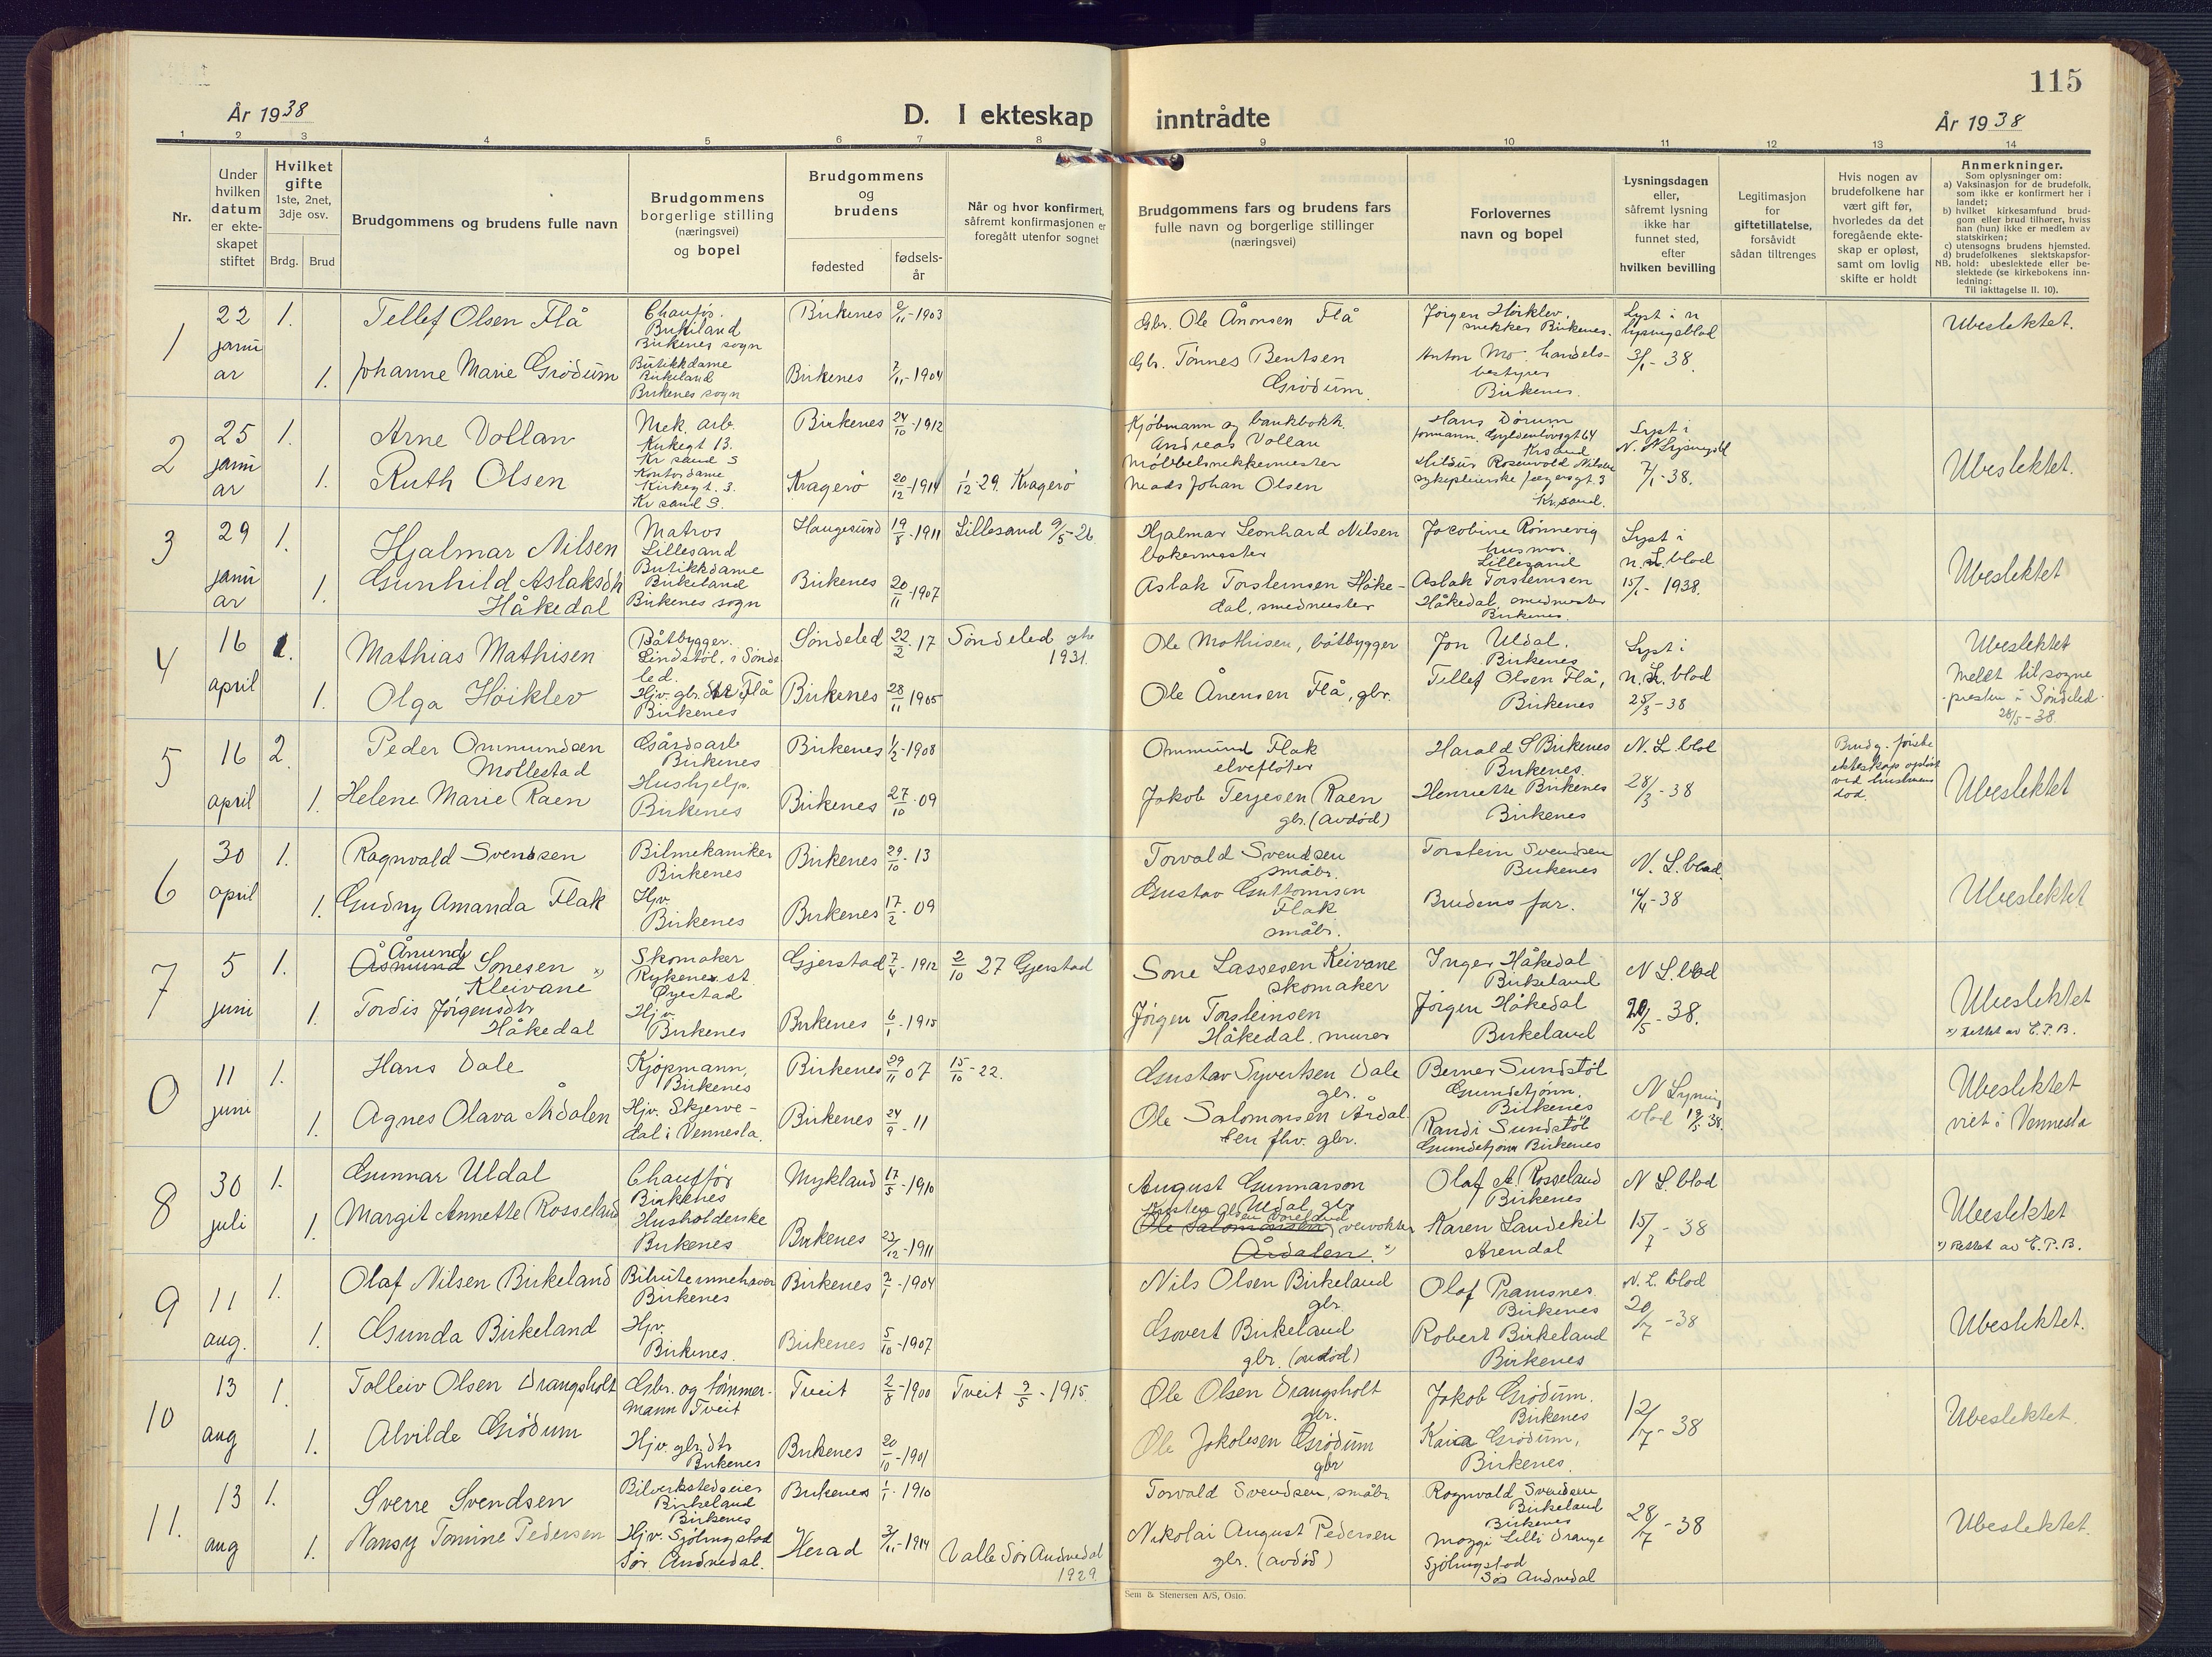 115
År 1938
D. I ekteskap inntrådte
År 1938
1 2 3 4 5 6 7 8 9 10 11 12 13 14
Nr.
Under hvilken datum er ekteskapet stiftet
Hvilket gifte
1ste, 2net, 3dje osv.
Brdg. Brud
Brudgommens og brudens fulle navn
Brudgommens borgerlige stilling (næringsvei) og bopel
Brudgommens og brudens
fødested
fødselsår
Når og hvor konfirmert, såfremt konfirmasjonen er foregått utenfor sognet
Brudgommens fars og brudens fars fulle navn og borgerlige stillinger (næringsvei)
Forlovernes navn og bopel
Lysningsdagen eller, såfremt lysning ikke har funnet sted, efter hvilken bevilling
Legitimasjon for giftetillatelse, forsåvidt sådan tiltrenges
Hvis nogen av brudefolkene har vært gift før, hvorledes da det foregående ekteskap er opløst, samt om lovlig skifte er holdt
Anmerkninger.
Som oplysninger om:
a) Vaksinasjon for de brudefolk, som ikke er konfirmert her i landet;
b) hvilket kirkesamfund brudgom eller brud tilhører, hviss han (hun) ikke er medlem av statskirken;
c) utensogns brudens hjemsted.
d) brudefolkenes slektskapsforhold: ubeslektede eller beslektede (se kirkebokens innledning:
NB.
Til iakttagelse II. 10).
1
22 januar
1.
Tellef Olsen Flå
Chauffør.
Birkeland
Birkenes sogn
Birkenes 2/11-1903
Gbr. Ole Ånonsen Flå
Jørgen Høiklev,
snekker Birkenes.
Lyst i n
lysningsblad
3/1-38.
Ubeslektet.
1.
Johanne Marie Grødum
Butikkdame
Birkeland
Birkenes sogn
Birkenes 7/11-1904
Gbr. Tønnes Bentsen
Grødum.
Anton Mo. handels-
bestyrer
Birkenes.
2
25 januar
1.
Arne Vollan
Mek. arb.
Kirkegt 13.
Kr sand S
Birkenes 24/10-1912
Kjøbmann og bankbokh.
Andreas Vollan
Hans Dørum
formann. Gyldenløvsgt 64
Kr sand
Lyst i
N. N Lysningsbl
7/1-38.
Ubeslektet.
1.
Ruth Olsen
Kontordame
Kirkegt. 3.
Kr sand S.
Kragerø 20/12-1911
1/12-29. Kragerø
Møbbelsnekkermester
Mads Johan Olsen
Rosenvold Nilsen
sykepleierske
Kr. sand.
3
29 januar
1.
Hjalmar Nilsen
Matros
Lillesand
Haugesund 19/8-1911
Lillesand 9/5-26
Hjalmar Leonhard Nilsen
bakermester
Jacobine Rønnevig
husmor.
Lillesand
Lyst i
n. L. blad
15/1-1938.
Ubeslektet
1.
Gunhild Aslaksdtr
Håkedal
Butikkdame
Birkeland
Birkenes sogn
Birkenes 20/11-1907
Aslak Torsteinsen Håke-
dal, smedmester
Aslak Torsteinsen
Håkedal, smedmester
Birkenes.
4
16 april
1.
Mathias Mathisen
Båtbygger.
Lindstøl, i Sønde
led.
Søndeled 22/2-17
Søndeled
1931.
Ole Mathisen, båtbygger
Jon Uldal.
Birkenes
Lyst i
n. L. blad
25/3-38
Ubeslektet
Meldt til sogne
presten i Søndeled
28/5-38.
1.
Olga Høiklev
Hjv. gbr. dtr Flå
Birkenes
Birkenes 28/11-1905
Ole Ånensen Flå, gbr.
Tellef Olsen Flå,
Birkenes
5
16 april
2.
Peder Ommundsen
Mollestad
Gårdsarb
Birkenes
Birkenes 1/2-1908
Ommund Flak
elvefløter
Harald S Birkenes
Birkenes.
N. L blad
28/3-38
Brudg. første
ekteskap opløst
ved hustruens
død.
Ubeslektet
1.
Helene Marie Raen
Hushjelp.
Birkenes
Birkenes 27/10-09
Jakob Terjesen Raen
gbr. (avdød)
Henriette Birkenes
Birkenes
6
30 april
1.
Ragnvald Svendsen
Bilmekaniker
Birkenes
Birkenes 29/10-13
Torvald Svendsen
småbr.
Torstein Svendsen
Birkenes
N. L. blad.
14/4-38
Ubeslektet
1.
Gudny Amanda Flak
Hjv.
Birkenes
Birkenes 17/2-09
Gustav Guttormsen
Flak
småbr.
Brudens far.
7
5 juni
1.
Ånund
Åsmund Sonesen x)
Kleivane
Skomaker
Rykene st.
Øyestad
Gjerstad 7/4-1912
2/10 27 Gjerstad
Sone Lassesen Keivane
skomaker
Inger Håkedal
Birkeland
N L. blad
20/5-38.
Ubeslektet
x) Rettet av E.P.B.
1.
Tordis Jørgensdtr
Håkedal
Hjv.
Birkenes
Birkenes 6/1-1915
Jørgen Torsteinsen
Håkedal, murer
Jørgen Håkedal
Birkeland
0
11 juni
1.
Hans Dale
Kjøpmann,
Birkenes
Birkenes 29/11 07
15/10-22.
Gustav Syvertsen Dale
gbr.
Berner Sundstøl
Grundetjønn.
Birkenes
N Lysning
blad 19/5 38.
Ubeslektet
viet i Vennesla
1.
Agnes Olava Årdalen
Hjv. Skjerve-
dal i Vennesla.
Birkenes 24/9-11
Ole Salomonsen Årdal
en fhv. gbr.
Randi Sundstøl
Grundetjønn Birkenes
8
30 juli
1.
Gunnar Uldal
Chauffør
Birkenes
Mykland 17/5-1910
August Gunnarson
Uldal gbr
Olaf A. Rosseland
Birkenes
N L. blad
15/7-38
Ubeslektet
x) Rettet av E.P.B.
1.
Margit Annette Rosseland
Husholderske
Birkenes
Birkenes 23/12-1911
Ole Salomonsen veivokter
Årdalen x)
Karen Landekil
Arendal
9
11 aug.
1.
Olaf Nilsen Birkeland
Bilruteinnehaver
Birkenes
Birkenes 2/1-1904
Nils Olsen Birkeland
gbr.
Olaf Pramsnes.
Birkenes
N. L. blad
20/7-38
Ubeslektet.
1.
Gunda Birkeland
Hjv.
Birkenes.
Birkenes 5/10-1907
Govert Birkeland
gbr. (avdød)
Robert Birkeland
Birkenes
10
13 aug
1.
Tolleiv Olsen Drangsholt
Gbr. og tømmer-
mann Tveit
Tveit 2/8-1900
Tveit 9/5-1915.
Ole Olsen Drangsholt
gbr.
Jakob Grødum.
Birkenes
12/7-38
Ubeslektet.
1.
Alvilde Grødum
Hjv. gbr. dtr
Birkenes
Birkenes 20/10-1901
Ole Jakobsen Grødum
gbr
Kaia Grødum,
Birkenes.
11.
13 aug
1.
Sverre Svendsen
Bilverkstedseier
Birkeland
Birkenes
Birkenes 1/1-1910
Torvald Svendsen, småbr.
Ragnvald Svendsen
Birkeland
Birkenes
28/7-38
Ubeslektet.
1.
Nansy Tomine Pedersen
Hjv. Sjølingstad
Sør Audnedal.
Herad 3/11-1914
Valle Sør Audnedal
1929.
Nikolai August Pedersen
gbr. (avdød)
Lilli Drange
Sjølingstad
Sør Audnedal
Sem & Stenersen A/S, Oslo.